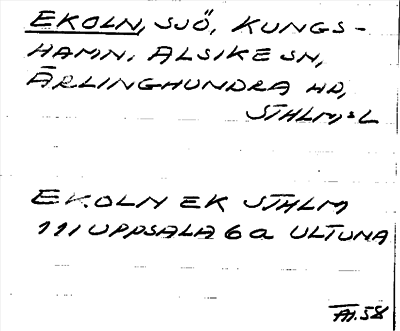 EKOLN, SJÖ, KUNGS-
HAMN. ALSIKE SN,
ÄRLINGHUNDRA HD,
STHLM:S L
EKOLN EK STHLM
111 UPPSALA 6a ULTUNA